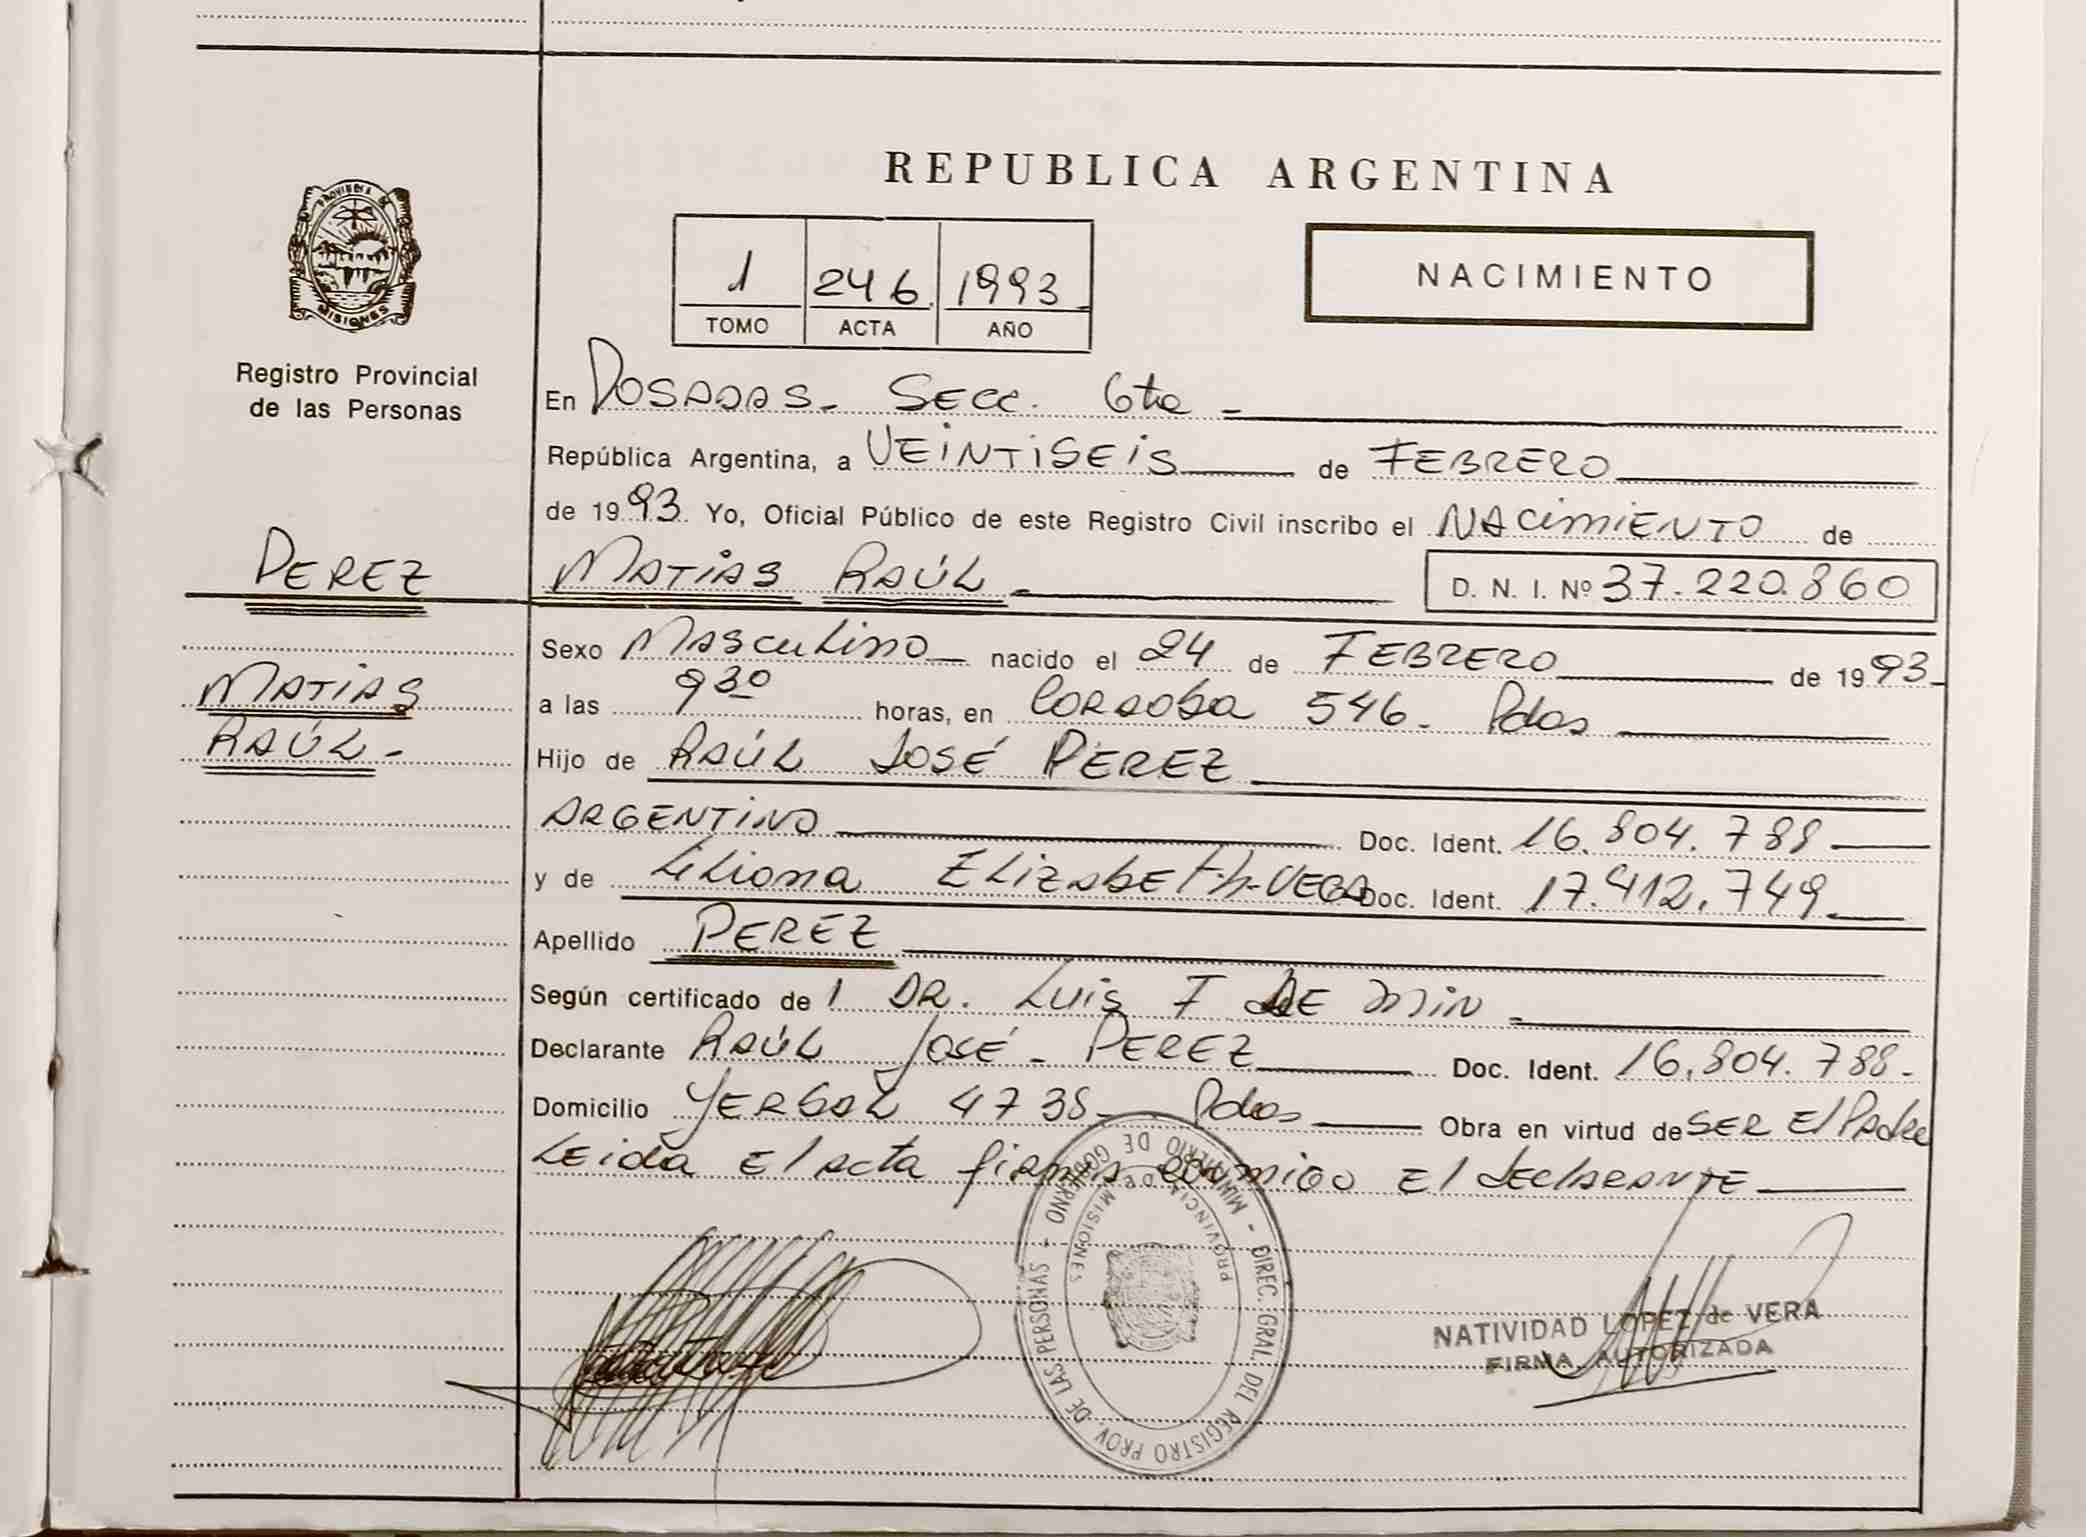 REPUBLICA ARGENTINA
PROVINCIA DE
MISIONES
Registro Provincial
de las Personas
1 246 1993
TOMO ACTA AÑO
NACIMIENTO
En POSADAS - SECC. 6ta -
República Argentina, a VEINTISEIS de FEBRERO
de 1993 Yo, Oficial Público de este Registro Civil inscribo el NACIMIENTO de
PEREZ
MATIAS RAÚL - D. N. I. Nº 37.220.860
Sexo MASCULINO nacido el 24 de FEBRERO de 1993
MATIAS
a las 930 horas, en CORDOBA 546 - Pdas
RAÚL -
Hijo de RAÚL JOSÉ PEREZ
ARGENTINO Doc. Ident. 16.804.788
y de Liliana ELIZABETH VEGA Doc. Ident. 17.412.749
Apellido PEREZ
Según certificado de 1 DR. Luis F DE MIN
Declarante RAÚL JOSÉ - PEREZ Doc. Ident. 16.804.788 -
Domicilio YERBAL 4738 - Pdas Obra en virtud de SER El Padre
LEIDA El acta firma conmigo El dEclARANTE
DIREC. GRAL. DEL REGISTRO PROV. DE LAS PERSONAS - MINISTERIO DE GOBIERNO -
PROVINCIA DE MISIONES
NATIVIDAD LOPEZ de VERA
FIRMA AUTORIZADA